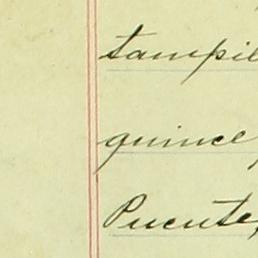 tampil
quince
Puente,